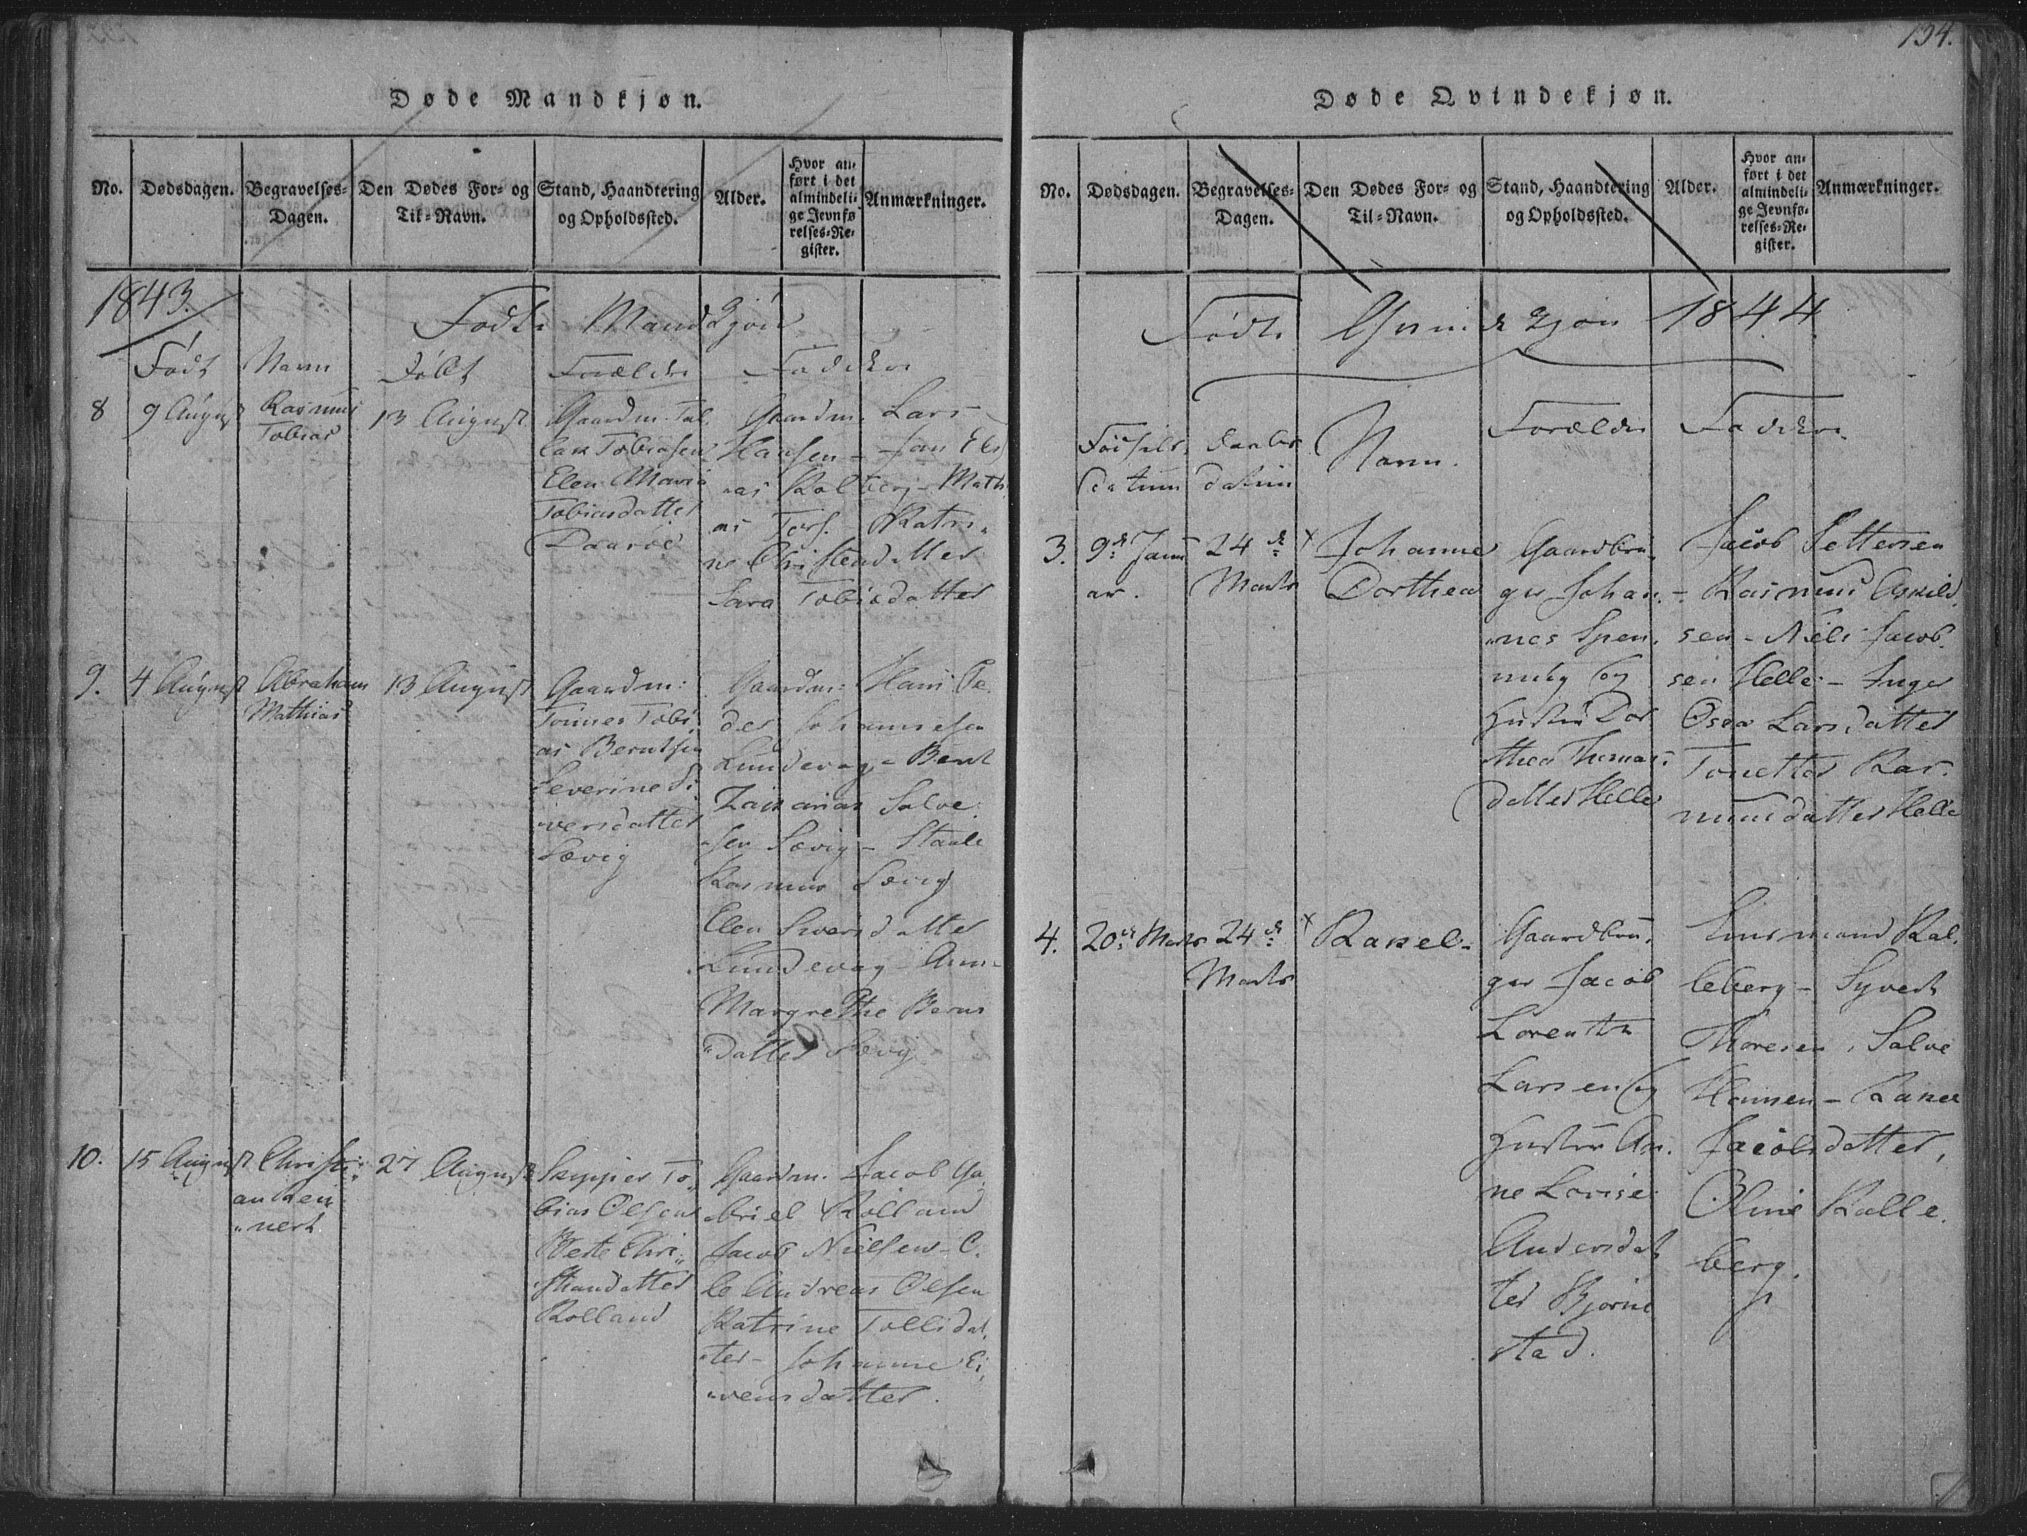 134.
Døde Mandkjøn.
No. Dødsdagen. Begravelses-Dagen. Den Dødes For- og Til-Navn. Stand, Haandtering og Opholdssted. Alder. Hvor anført i det almindelige Jevnførelses-Register. Anmærkninger.
1843.
Fødte Mandkjøn
Født Navn Døbt Forældre Faddere
8 9 August Rasmus Tobias 13 August
Gaardm. Tal
lak Tobiasen
Elen Maria
Tobiasdatter
Gaardm. Lars
Hansen - Jan Eli
as Kolberg - Math
as Ters. - Katri
ne Christendatter
Sara Tobiasdatter
9. 4 August Abraham Mathias 13 August
Gaardm:
Tønnes Tobi
as Berntsen
Severine Si
versdatter
Sævig
Gaardm: Hans Pe
der Johannesen
Lundevag - Bernt
Zakarias Salve
sen Sævig - Staale
Rasmus Sævig
Elen Siversdatter
Lundevag - Ann
Margrethe Berns
datter Sævig
10. 15 August Christi
an Rei
nert
27 August
Skipper To
bias Olsen
Chri
stiandatter
Rolland
Gaardm. Jacob Ga
briel Rolland
Jacob Nielsen - O
le Andreas Olsen
Katrine Tollisdat
ter - Johanne Ei
vensdatter.
Døde Qvindekjøn.
No. Dødsdagen. Begravelses-Dagen. Den Dødes For- og Til-Navn. Stand, Haandtering og Opholdssted. Alder. Hvor anført i det almindelige Jevnførelses-Register. Anmærkninger.
Fødte Qvindekjøn 1844.
Fødsels datum Daabs datum Navn. Forældre Faddere.
3. 9de Janu
ar. 24de Marts Johanne Dorthea
Gaardbru
ger Johan
nes Spen
ning og
Hustru Dor
thea Thomas
datter Helle
Jacob Pettersen
- Rasmus Askild
sen - Niels Jacob
sen Helle - Inger
Osea Larsdatter
Tonette Ras
musdatter Helle
4. 20de Marts 24de Marts Rakel -
Gaardbru
ger Jacob
Lorentz
Larsen og
Hustru An
ne Lovise
Andersdat
ter Bjørne
stad.
Kal
leberg - Syvert
Thoresen, Salve
Hansen - Rakel
Jacobsdatter,
Oline Kalle
berg.